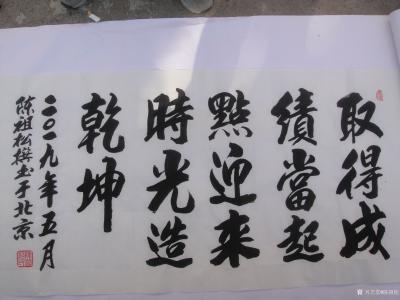 取得成
績當起
點迎來
時光造
乾坤
二〇一九年五月
陈祖松撰书于北京